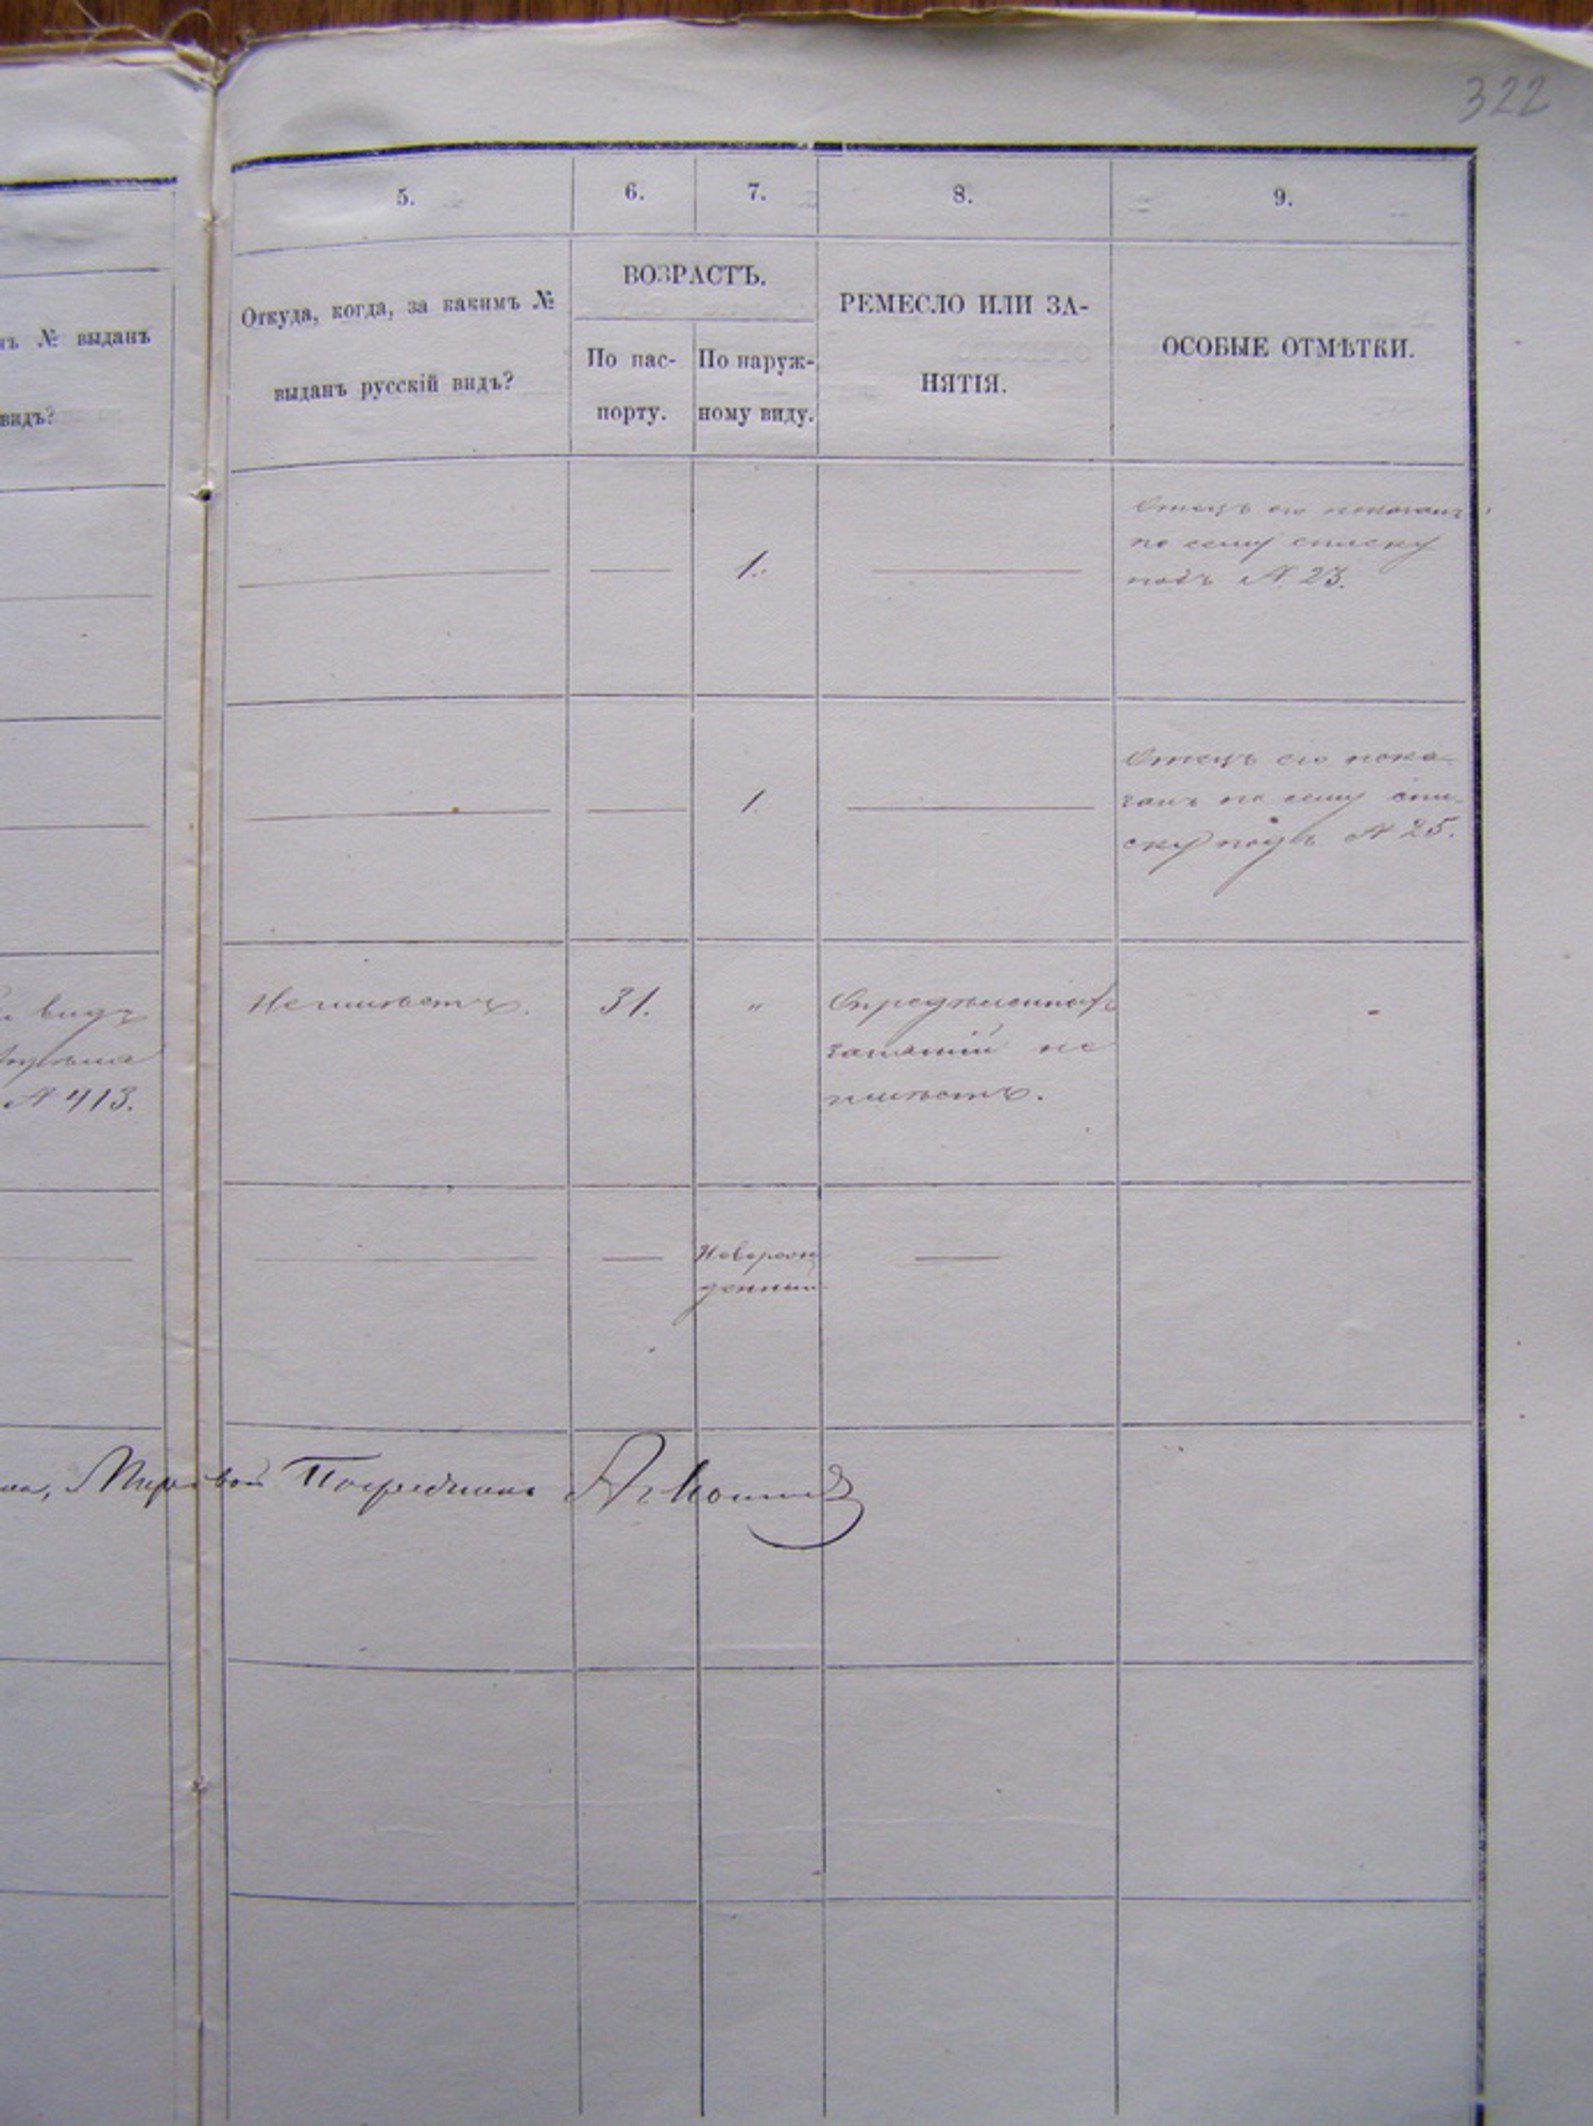 322
5.
6.
7.
8.
9.
нъ № выданъ
видъ?
Откуда, когда, за какимъ №
выданъ русскій видъ?
ВОЗРАСТЪ.
По пас-
порту.
По наруж-
ному виду.
РЕМЕСЛО ИЛИ ЗА-
НЯТІЯ.
ОСОБЫЕ ОТМѢТКИ.
1.
Отецъ его показанъ
по сему списку
подъ № 23.
1.
Отецъ его пока-
занъ по сему спи-
ску подъ № 25.
видъ
№ 413.
Неимѣетъ.
31.
"
Опредѣленныхъ
занятій не
имѣетъ.
-
Новорож
денный
Мировой Посредникъ